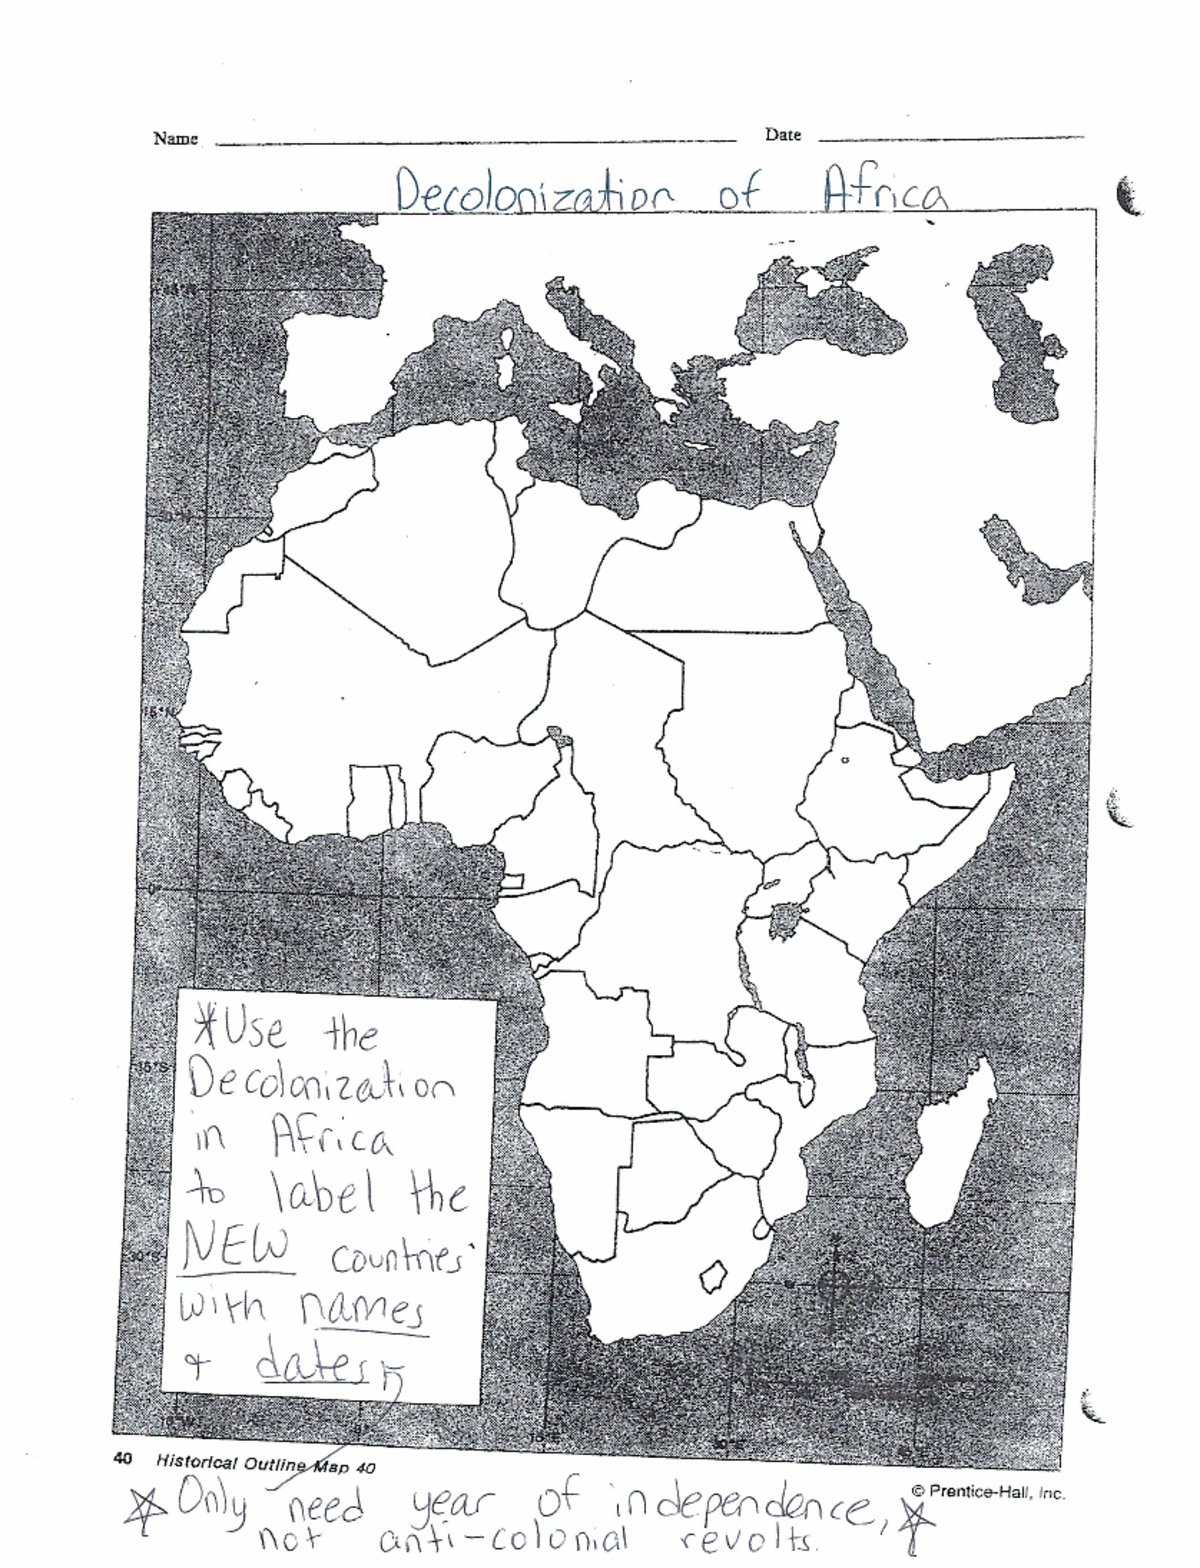 Name Date
Decolonization of Africa
15°N
0°
*Use the
Decolonization
in Africa
to label the
NEW countries
with names
+ dates
40 Historical Outline Map 40
© Prentice-Hall, Inc.
☆ Only need year of independence, ☆
not anti-colonial revolts.